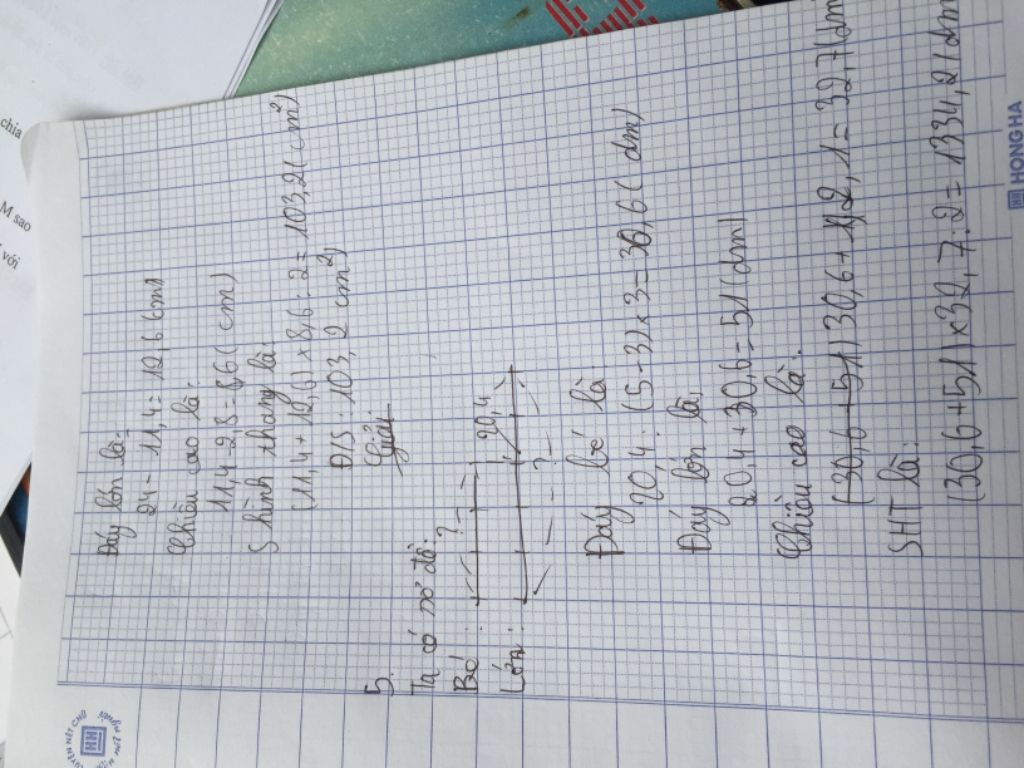 Đáy lớn là:
24 - 11,4 = 12,6 (cm)
Chiều cao là:
11,4 - 2,8 = 8,6 (cm)
S hình thang là:
(11,4 + 12,6) x 8,6 : 2 = 103,2 (cm²)
Đ/S: 103,2 cm²)
5. Giải
Ta có sơ đồ:
Bé: ?
20,4
Lớn: ?
Đáy bé là:
20,4 : (5 - 3) x 3 = 30,6 (dm)
Đáy lớn là:
20,4 + 30,6 = 51 (dm)
Chiều cao là:
(30,6 + 51) 30,6 + 2,1 = 32,7 (dm
SHT là:
(30,6 + 51) x 32,7 : 2 = 1334,2 (dm
HONG HA
chia
M sao
với